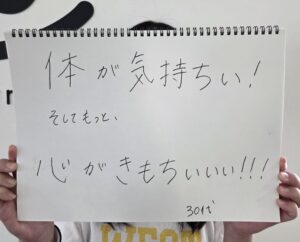 体が気持ちい!
そしてもっと、
心がきもちいいい!!!
30代